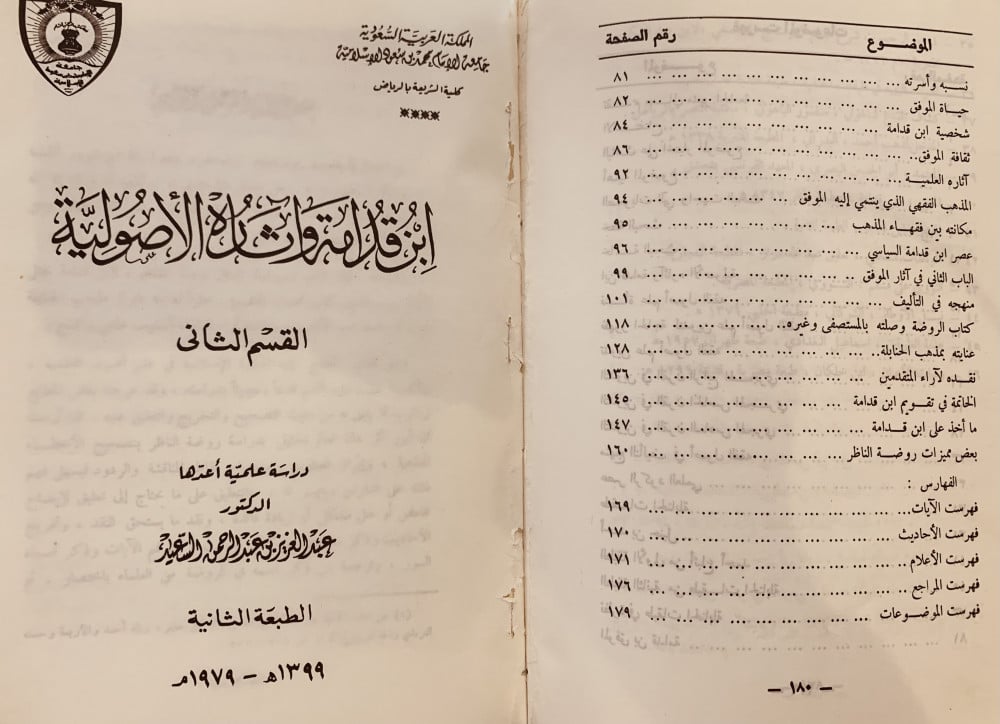 الموضوع رقم الصفحة
نسبه وأسرته ... ٨١
حياة الموفق ... ٨٢
شخصية ابن قدامة ... ٨٤
ثقافة الموفق ... ٨٦
آثاره العلمية ... ٩٢
المذهب الفقهي الذي ينتمي إليه الموفق ... ٩٤
مكانته بين فقهاء المذهب ... ٩٥
عصر ابن قدامة السياسي ... ٩٦
الباب الثاني في آثار الموفق ... ٩٩
منهجه في التأليف ... ١٠١
كتاب الروضة وصلته بالمستصفى وغيره ... ١١٨
عنايته بمذهب الحنابلة ... ١٢٨
نقده لآراء المتقدمين ... ١٣٦
الخاتمة في تقويم ابن قدامة ... ١٤٥
ما أخذ على ابن قدامة ... ١٤٧
بعض مميزات روضة الناظر ... ١٦٠
الفهارس :
فهرست الآيات ... ١٦٩
فهرست الأحاديث ... ١٧٠
فهرست الأعلام ... ١٧١
فهرست المراجع ... ١٧٦
فهرست الموضوعات ... ١٧٩
– ١٨٠ –
المملكة العربية السعودية
جامعة الإمام محمد بن سعود الإسلامية
كلية الشريعة بالرياض
****
ابن قدامة وآثاره الأصولية
القسم الثاني
دراسة علمية أعدها
الدكتور
عبد العزيز بن عبد الرحمن السعيد
الطبعة الثانية
١٣٩٩هـ – ١٩٧٩م